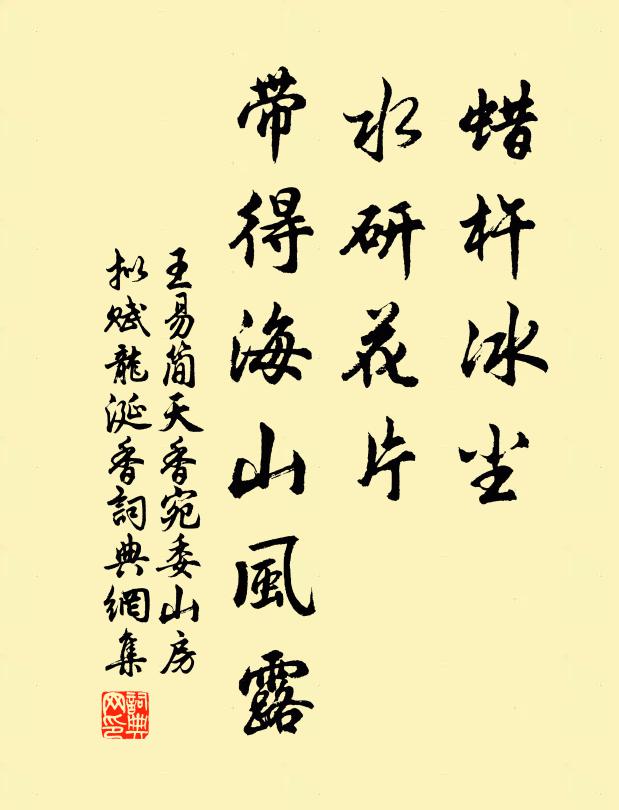 蜡杵冰尘
水研花片
带得海山風露
王易简天香宛委山房
拟赋龍涎香詞典網集
詞典网印